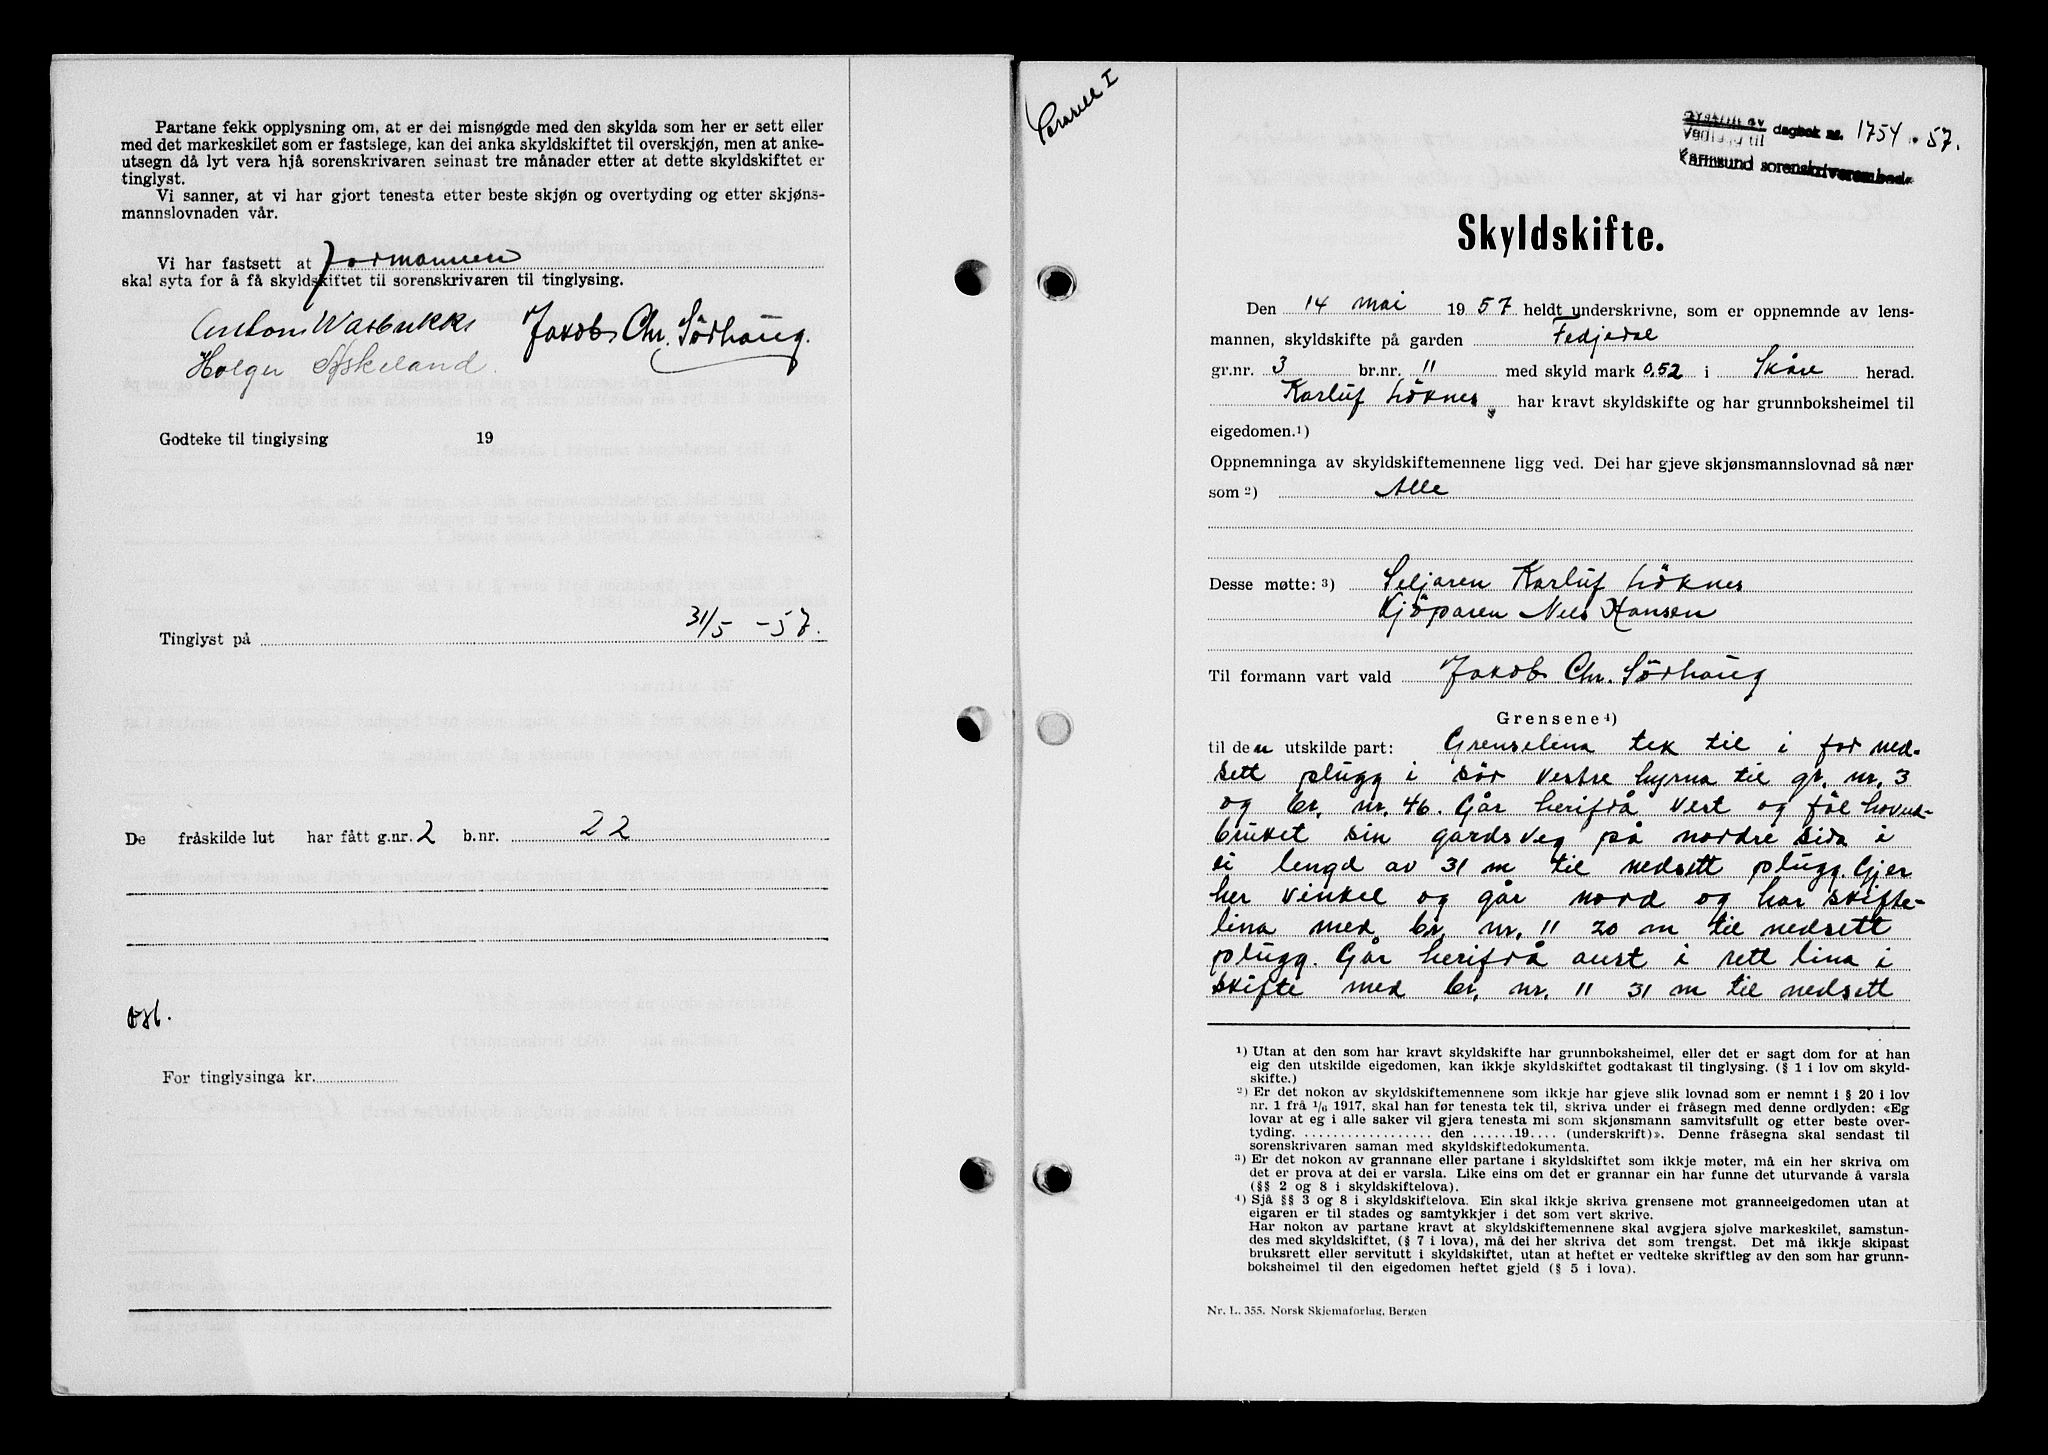 Partane fekk opplysning om, at er dei misnøgde med den skylda som her er sett eller
med det markeskilet som er fastslege, kan dei anka skyldskiftet til overskjøn, men at anke-
utsegn då lyt vera hjå sorenskrivaren seinast tre månader etter at dette skyldskiftet er
tinglyst.
Vi sanner, at vi har gjort tenesta etter beste skjøn og overtyding og etter skjøns-
mannslovnaden vår.
Vi har fastsett at Formannen
skal syta for å få skyldskiftet til sorenskrivaren til tinglysing.
Anton Wasbukke Jakob Chr. Sörhaug.
Holger Askeland.
Godteke til tinglysing 19
Tinglyst på 31/5 -57.
De fråskilde lut har fått g.nr. 2 b.nr. 22
For tinglysinga kr.
Pararell I
dagbok nr. 1754 - 57.
Vedlegg til
Karmsund sorenskriverembede
Skyldskifte.
Den 14 mai 1957 heldt underskrivne, som er oppnemnde av lens-
mannen, skyldskifte på garden Fedjedal
gr.nr. 3 br.nr. 11 med skyld mark 0,52 i Skåre herad.
Karluf Löknes, har kravt skyldskifte og har grunnboksheimel til
eigedomen.1)
Oppnemninga av skyldskiftemennene ligg ved. Dei har gjeve skjønsmannslovnad så nær
som 2) Alle
Desse møtte: 3) Seljaren Karluf Löknes
Kjöparen Nils Hansen
Til formann vart vald Jakob Chr. Sörhaug
Grensene 4)
til den utskilde part: Grenselina tek til i for ned-
sett plugg i sör vestre hyrna til gr. nr. 3
og br. nr. 46. Går herifrå vest og föl hovud-
bruket sin gardsveg på nordre sida i
ei lengd av 31 m til nedsett plugg. Gjer
her vinkel og går nord og har skifte-
lina med br. nr. 11 20 m til nedsett
plugg. Går herifrå aust i rett lina i
skifte med br. nr. 11 31 m til nedsett
1) Utan at den som har kravt skyldskifte har grunnboksheimel, eller det er sagt dom for at han
eig den utskilde eigedomen, kan ikkje skyldskiftet godtakast til tinglysing. (§ 1 i lov om skyld-
skifte.)
2) Er det nokon av skyldskiftemennene som ikkje har gjeve slik lovnad som er nemnt i § 20 i lov
nr. 1 frå 1/6 1917, skal han før tenesta tek til, skriva under ei fråsegn med denne ordlyden: «Eg
lovar at eg i alle saker vil gjera tenesta mi som skjønsmann samvitsfullt og etter beste over-
tyding. .................. den ......19.... (underskrift)». Denne fråsegna skal sendast til
sorenskrivaren saman med skyldskiftedokumenta.
3) Er det nokon av grannane eller partane i skyldskiftet som ikkje møter, må ein her skriva om
det er prova at dei er varsla. Like eins om det er grannar ein har funne det uturvande å varsla
(§§ 2 og 8 i skyldskiftelova).
4) Sjå §§ 3 og 8 i skyldskiftelova. Ein skal ikkje skriva grensene mot granneeigedomen utan at
eigaren er til stades og samtykkjer i det som vert skrive.
Har nokon av partane kravt at skyldskiftemennene skal avgjera sjølve markeskilet, samstun-
des med skyldskiftet, (§ 7 i lova), må dei her skriva det som trengst. Det må ikkje skipast
bruksrett eller servitutt i skyldskiftet, utan at heftet er vedteke skriftleg av den som har grunn-
boksheimel til den eigedomen heftet gjeld (§ 5 i lova).
Nr. L. 355. Norsk Skjemaforlag, Bergen